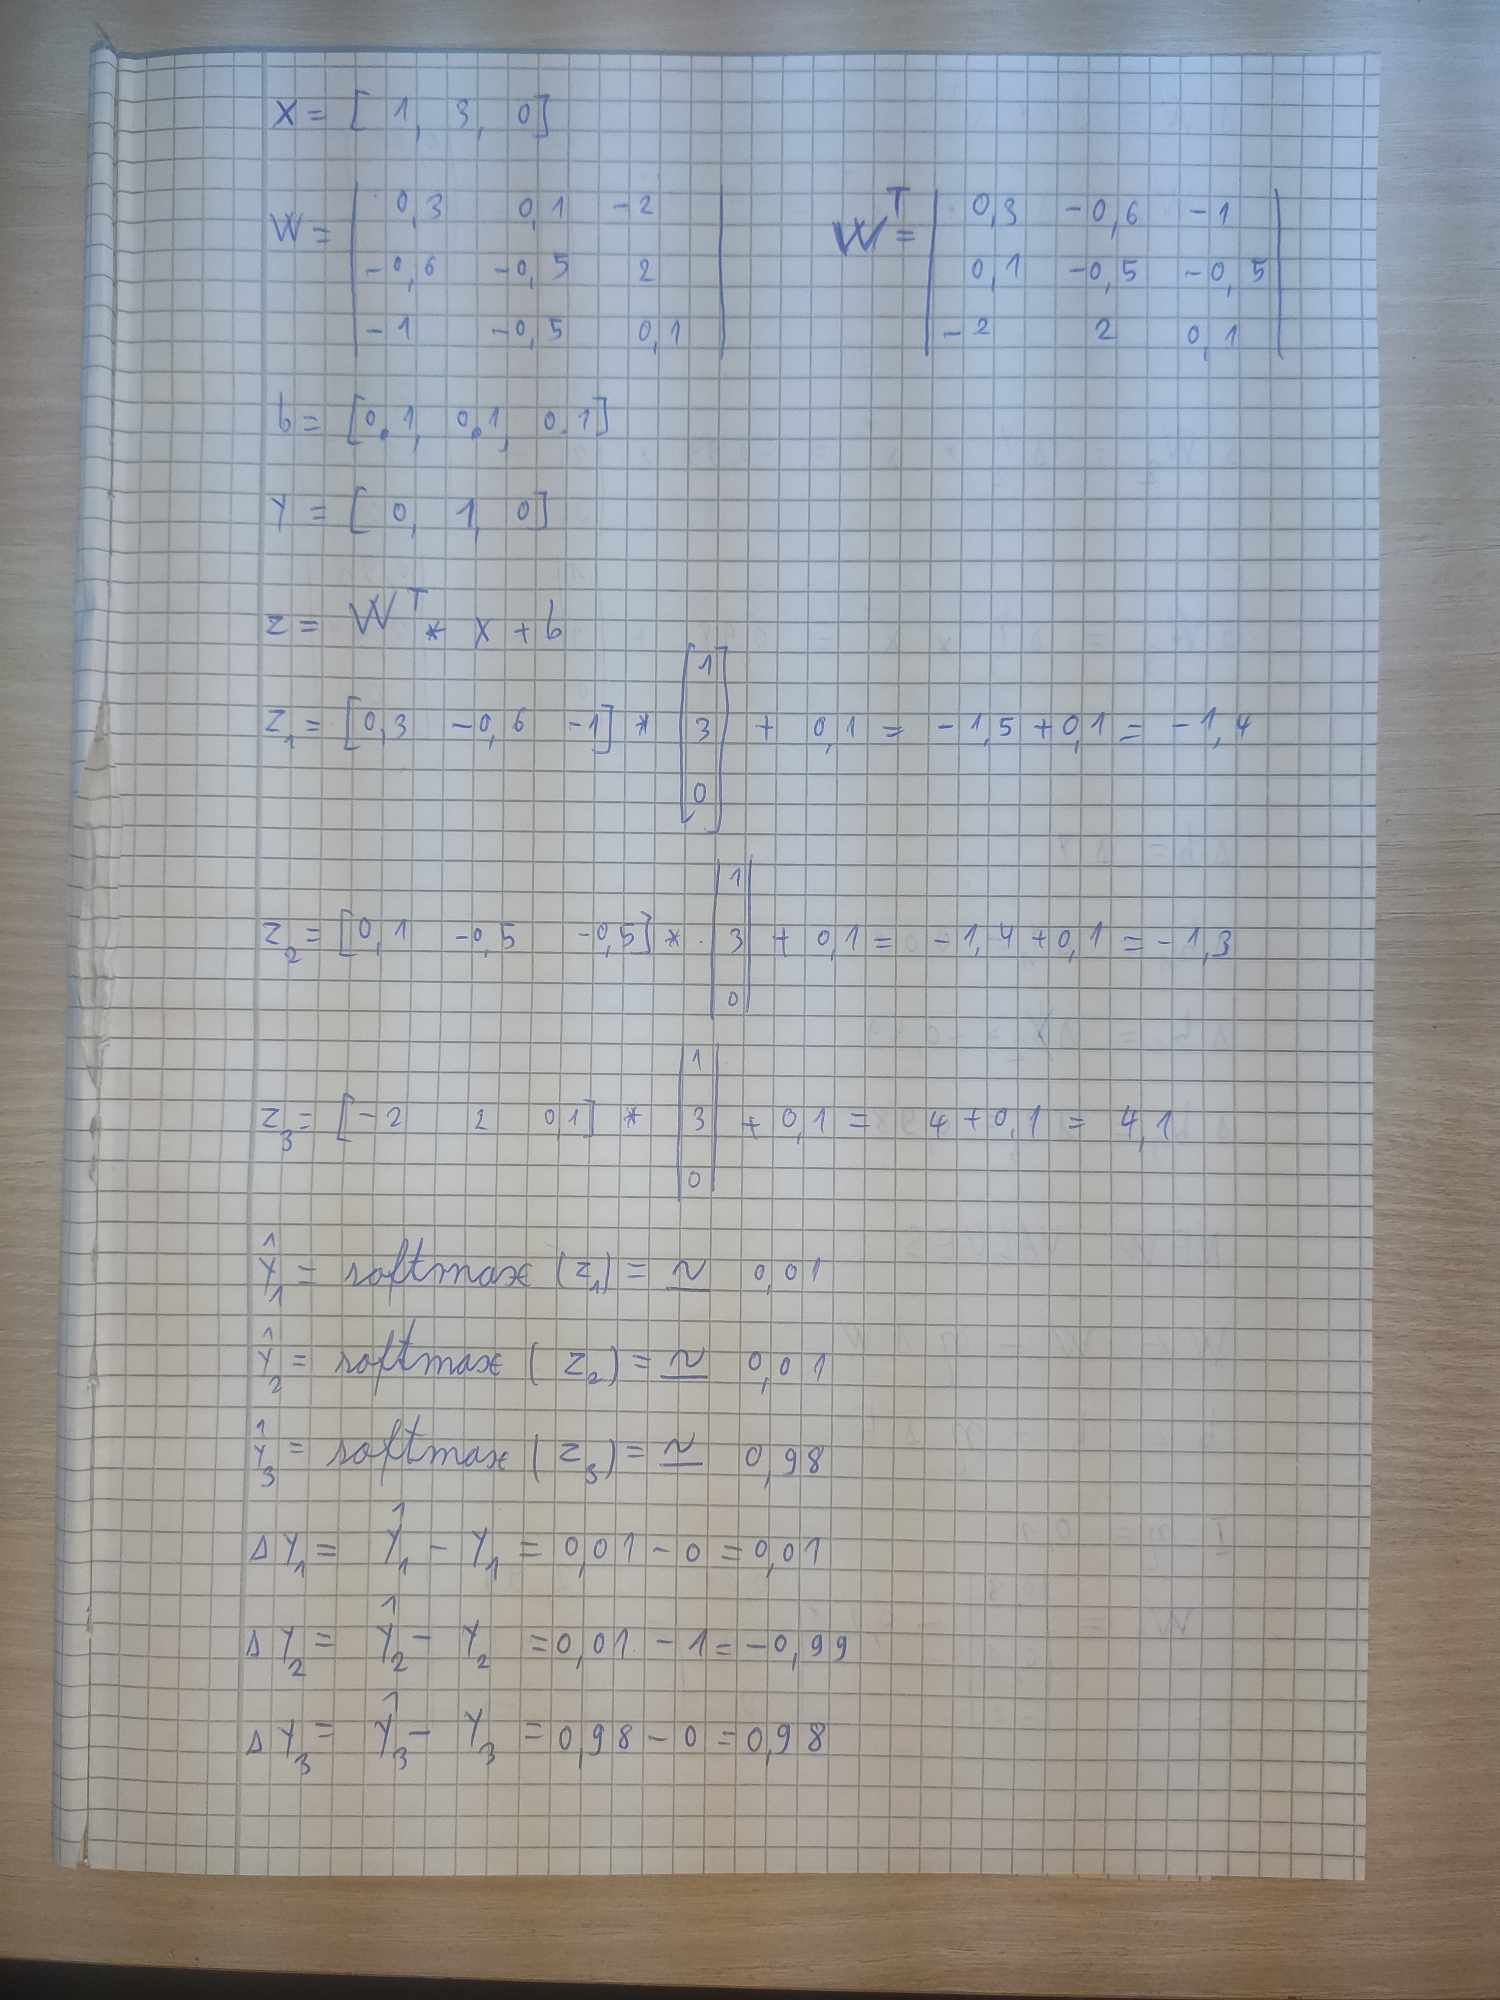 X = [ 1, 3, 0]
W = | 0,3 0,1 -2 | W^T = | 0,3 -0,6 -1 |
| -0,6 -0,5 2 | | 0,1 -0,5 -0,5 |
| -1 -0,5 0,1 | | -2 2 0,1 |
b = [0.1, 0.1, 0.1]
Y = [ 0, 1, 0]
z = W^T * X + b
z1 = [0,3 -0,6 -1] * [1 3 0] + 0,1 = -1,5 + 0,1 = -1,4
z2 = [0,1 -0,5 -0,5] * |1 3 0| + 0,1 = -1,4 + 0,1 = -1,3
z3 = [-2 2 0,1] * |1 3 0| + 0,1 = 4 + 0,1 = 4,1
Ŷ1 = softmax (z1) = ≃ 0,01
Ŷ2 = softmax (z2) = ≃ 0,01
Ŷ3 = softmax (z3) = ≃ 0,98
ΔY1 = Ŷ1 - Y1 = 0,01 - 0 = 0,01
ΔY2 = Ŷ2 - Y2 = 0,01 - 1 = -0,99
ΔY3 = Ŷ3 - Y3 = 0,98 - 0 = 0,98